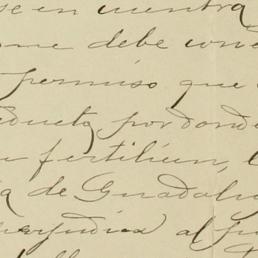 se en cuentra
me debe cond
permiso que
educto, por dond
u fertilicen, l
a de Guadalu
perjudica al pu